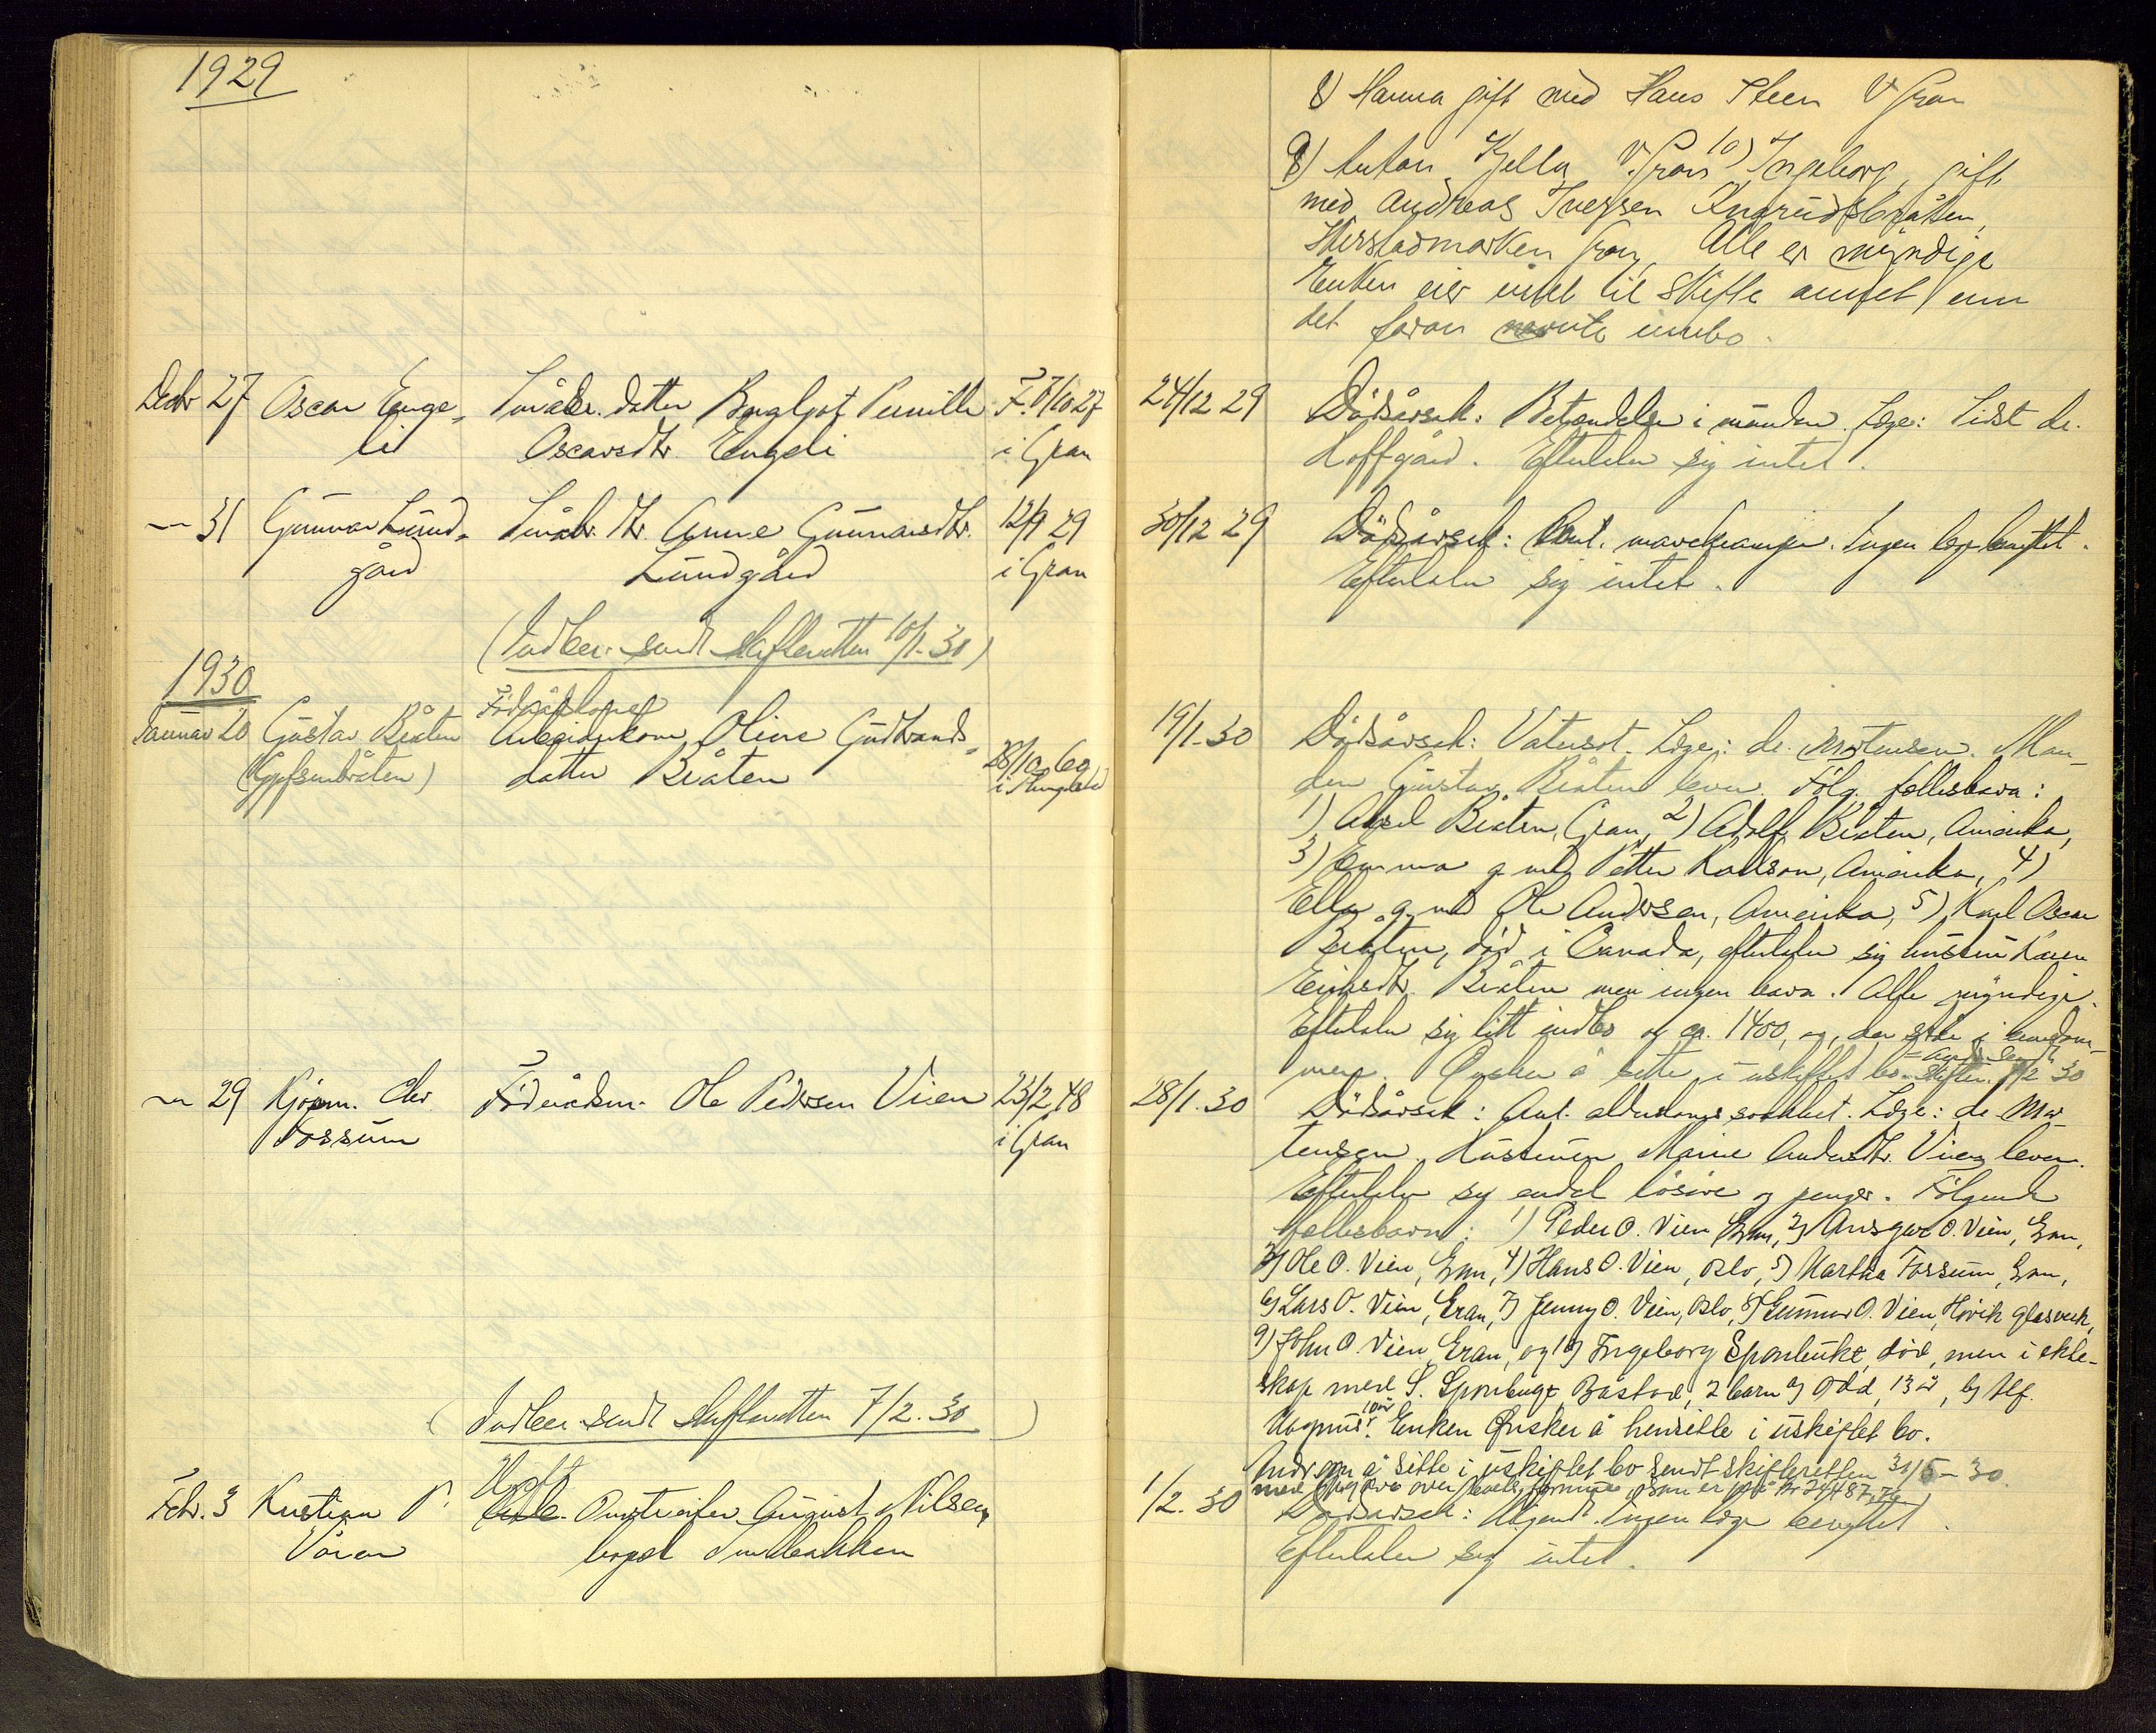 1929
8) Hanna gift med Hans Steen V Gran
9) Anton Kjella V. Gran 10) Ingeborg, gift
med Andreas Iversen Ingrudsbråten,
Gran, Alle er myndige
Enken eier intet til skifte annet enn
det foran nevnte innbo.
Decbr 27 Oscar Enge-
li
Småbr. datter Bergljot Pernille
Oscarsdtr. Engeli
F. 8/10 27
i Gran
24/12 29
Dødsårsak: Betændelse i munden. Læge: Sidst dr.
Hoffgård. Efterlater sig intet.
— 31 Gunnar Lund-
gård
Småbr. dtr. Anne Gunnarsdtr.
Lundgård
12/9 29
i Gran
30/12 29
Dødsårsak: Ant. mavekrampe. Ingen læge benyttet.
Efterlater sig intet.
(Indber. sendt skifteretten 10/1-30)
1930
Januar 20 Gustav Bråten
Føderådskone
Arbeiderkone Oline Gudbrands-
datter Bråten
28/10 69
19/1-30
Dødsårsak: Vatersot. Læge: dr. Mortensen. Man-
den Gustav Bråten lever. Følg. fellesbarn:
1) Aksel Bråten, Gran, 2) Adolf Bråten, Amerika,
3) Emma g. med Petter Karlson, Amerika, 4)
Ella g. med Ole Andersen, Amerika, 5) Karl Oscar
Bråten, død i Canada, efterlater sig hustru Karen
Eriksdtr. Bråten men ingen barn. Alle myndige.
Efterlater sig litt indbo og ca. 1400, og, der står i eiendom-
men. Ønsker å sitte i uskiftet bo. - Andr. sendt
skifter. 7/2 30
— 29 Kjøpm. Elev
Fossum
Føderådsm. Ole Pedersen Vien
23/2 48
i Gran
28/1.30
Dødsårsak: Ant. alderdomssvakhet. Læge: dr. Mor-
tensen. Hustruen Marie Andersdtr. Vien lever.
Efterlater sig endel løsøre og penger. Følgende
fellesbarn: 1) Peder O. Vien Gran, 2) Ansgar O. Vien, Gran,
3) Ole O. Vien, Gran, 4) Hans O. Vien, Oslo, 5) Martha Fossum, Gran,
6) Lars O. Vien, Gran, 7) Jenny O. Vien, Oslo, 8) Gunnar O. Vien, Høvik glasverk,
9) John O. Vien, Gran, og 10) Ingeborg død, men i ekte-
skap med S. Båstad, 2 barn a) Odd, 13 år, b) Alf
Magnus 10 år. Enken ønsker å hensitte i uskiftet bo.
Andragn å sitte i uskiftet bo sendt skifteretten 30/5-30
(Indber. sendt skifteretten 7/2.30)
Febr. 3 Kristian P.
August Nilsen,
1/2.30
Dødsårsak: Ukjendt. Ingen læge benyttet.
Efterlater sig intet.